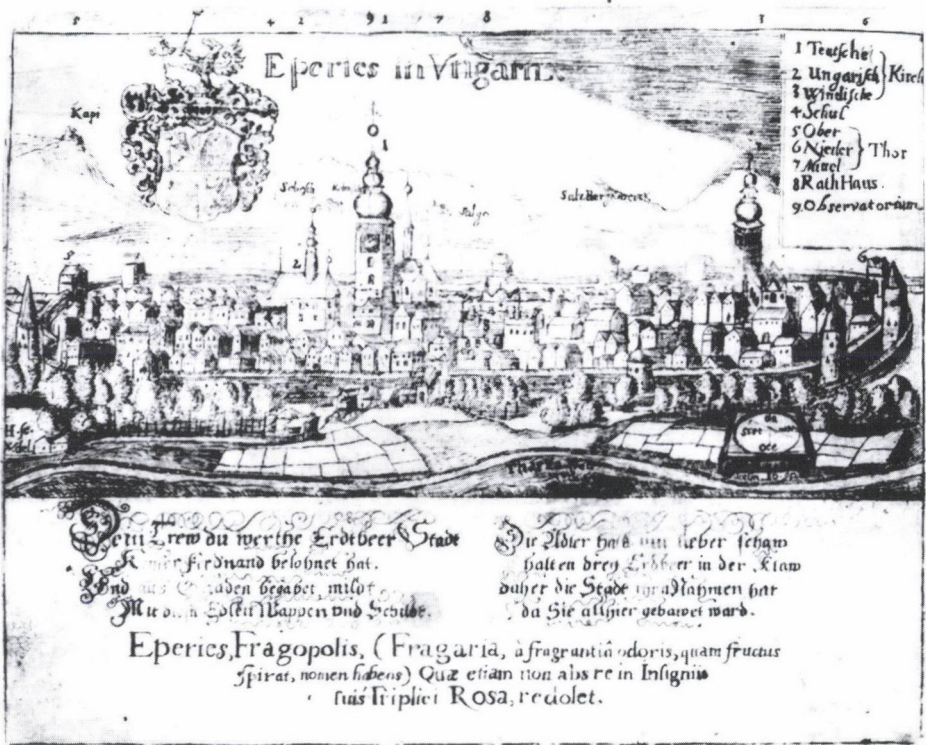 5 4 2 9 1 7 8 3 6
Eperies in Vngarn.
1 Teutsche
2 Ungarisch Kirch
3 Windische
4 Schul
5 Ober
6 Nieder Thor
7 Mittel
8 RathHaus.
9. Observatorium
Kapi
1
2
3
5
6
Dein Trew du werthe Erdtbeer Stadt
Ferdnand belohnet hat.
Vnd aus begabet, mildt
Mit Edlen Wappen vnd Schildt.
Die Adler lieber scham
halten drey Erdbeer in der Klaw
daher die Stadt Nahmen hat
da Sie allhier gebawet ward.
Eperies, Fragopolis, (Fragaria, à fragrantiâ odoris, quam fructus
spirat, nomen habens) Quæ etiam non abs re in Insigniis
suis Triplici Rosa, redolet.